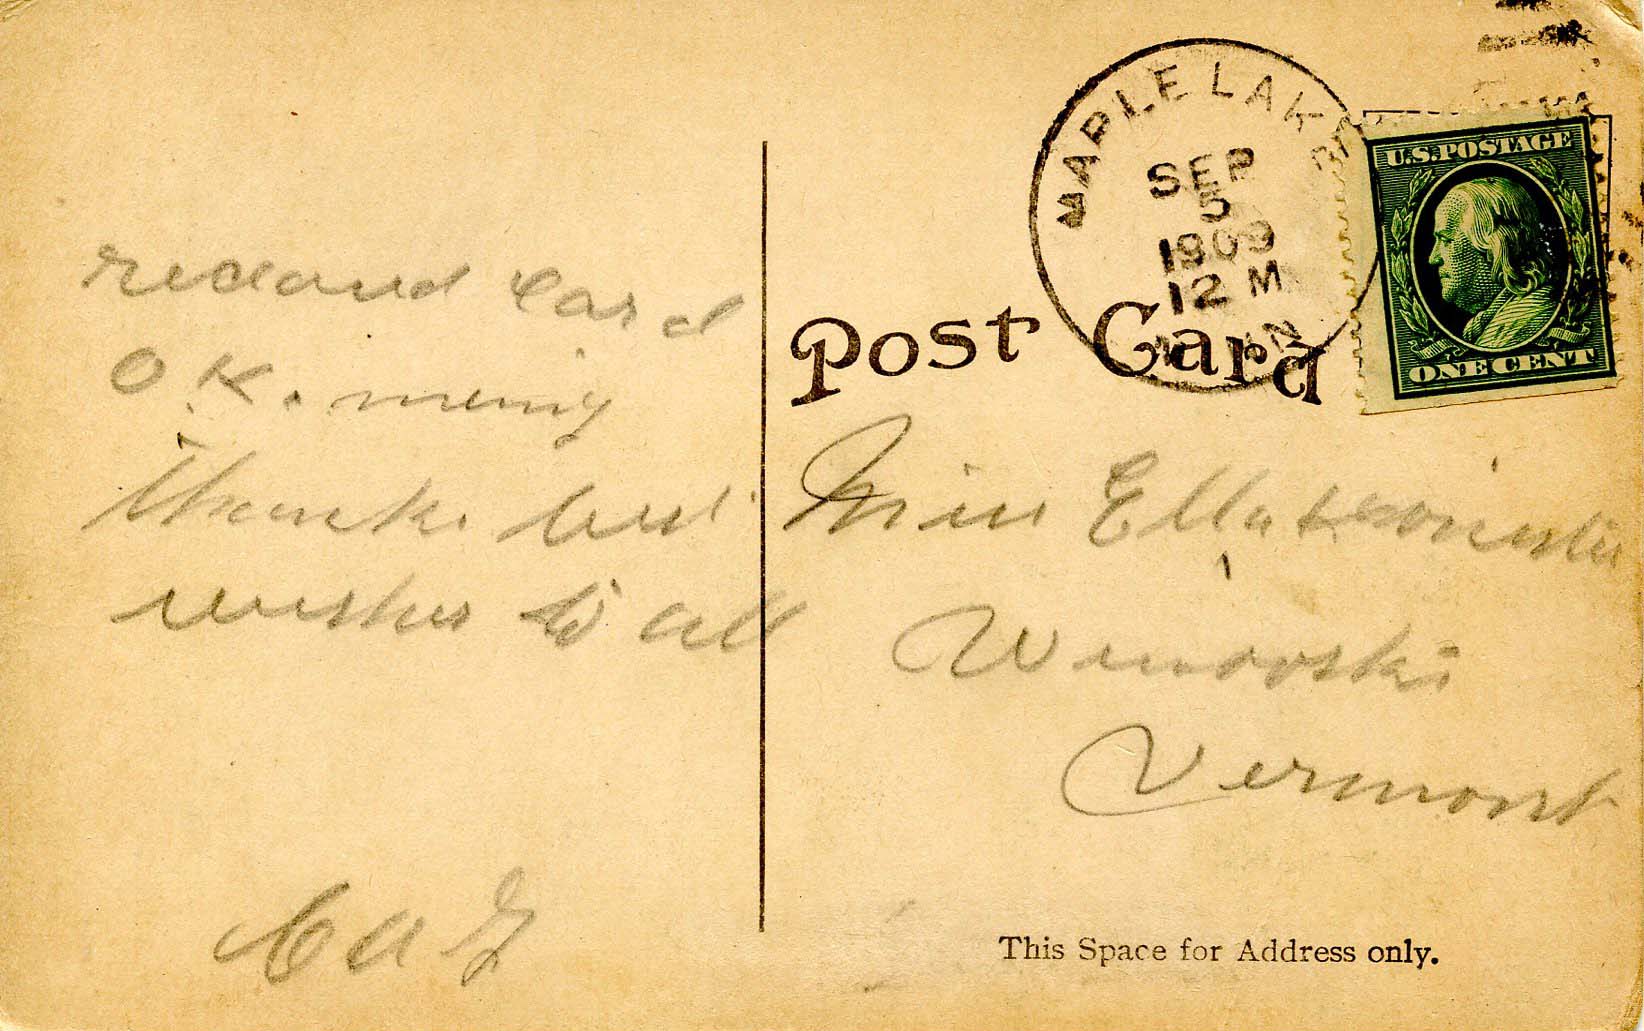 MAPLE LAKE
SEP
5
1909
12 M
U.S. POSTAGE
ONE CENT
Post Card
recaved Card
O.K. meny
thanks best
wishes to all
Miss Ella
Winooski
Vermont
This Space for Address only.